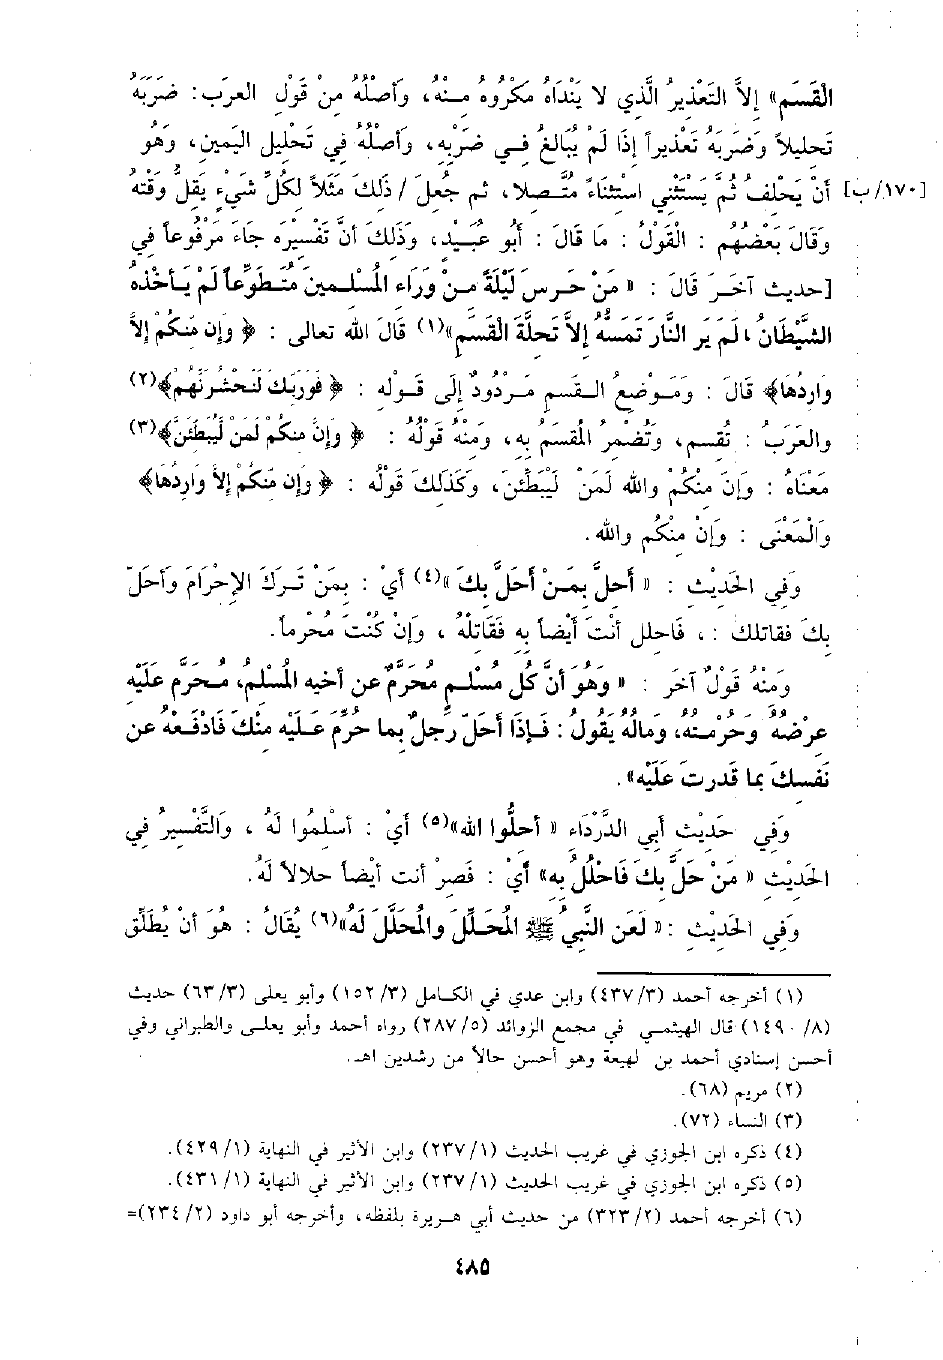 القَسَمِ» إلاَّ التَعْذِيرُ الَّذِي لا يَنْدَاهُ مَكْرُوهُ مِنْهُ، وَأصْلُهُ مِنْ قَوْلِ العَرَبِ: ضَرَبَهُ
تَحْلِيلاً وَضَرَبَهُ تَعْذِيراً إذَا لَمْ يُبَالِغْ فِي ضَرْبِهِ، وَأصْلُهُ فِي تَحْلِيلِ اليَمِينِ، وَهُوَ
[١٧٠/ب] أَنْ يَحْلِفَ ثُمَّ يَسْتَثْنِي اسْتِثْنَاءً مُتَّصِلا، ثم جُعِلَ / ذَلِكَ مَثَلاً لِكلِّ شَيْءٍ يَقِلُّ وَقْتُهُ
وَقَالَ بَعْضُهُم : القَوْلُ : مَا قَالَ : أبُو عُبَيْدٍ، وَذَلِكَ أنَّ تَفْسِيرَه جَاءَ مَرْفُوعاً في
[حديث آخَرَ قَالَ : « مَنْ حَرَسَ لَيْلَةً مِنْ وَرَاءِ المُسْلِمِينَ مُتَطَوِّعاً لَمْ يَأخُذْهُ
الشَّيْطَانُ، لَمْ يَرَ النَّارَ تَمَسُّهُ إلاَّ تَحِلَّةَ القَسَمِ»(١) قَالَ الله تعالى : ﴿ وَإن مِنكُمْ إلاَّ
وَارِدُهَا﴾ قَالَ : وَمَوْضِعُ القَسَمِ مَرْدُودٌ إلَى قَوْلِه : ﴿ فَوَرَبِّكَ لَنَحْشُرَنَّهُمْ﴾(٢)
والعَرَبُ : تُقْسِم، وَتُضْمِرُ المُقْسَمَ بِهِ، وَمِنْهُ قَوْلُهُ : ﴿ وَإنَّ مِنكُم لَمَنْ لَيُبَطِّئَنَّ﴾(٣)
مَعْنَاهُ : وَإنَّ مِنْكُمْ والله لَمَنْ لَيُبَطِّئَن، وَكَذَلِكَ قَوْلُه : ﴿ وَإن مِّنكُمْ إلاَّ وَارِدُهَا﴾
وَالْمَعْنَى : وَإنْ مِنْكُم والله.
وَفِي الحَدِيْثِ : « أحِلَّ بِمَنْ أحَلَّ بِكَ »(٤) أيْ : بِمَنْ تَرَكَ الإحْرَامَ وَأحَلَّ
بِكَ فقاتلك : ، فَاحلِل أنْتَ أيْضاً بِهِ فَقَاتِلْهُ ، وَإنْ كُنْتَ مُحْرِماً.
وَمِنْهُ قَوْلٌ آخَر : « وَهُوَ أنَّ كُل مُسْلِمٍ مُحَرَّمٌ عن أخيه المُسْلِمُ، مُحَرَّم عَلَيْهِ
عِرْضُهُ وَحُرْمَتُه، وَمَالُه يَقُولُ : فَإذَا أحَلّ رَجُلٌ بِما حُرِّمَ عَلَيْه مِنْكَ فَادْفَعْهُ عن
نَفسكَ بِمَا قَدرتَ عَلَيْه».
وَفِي حَدِيْثِ أبِي الدَّرْدَاءِ « أحِلُّوا الله»(٥) أيْ : أسْلِمُوا لَهُ ، وَالتَّفْسِيرُ فِي
الحَدِيْثِ « مَنْ حَلَّ بِكَ فَاحْلُلْ بِهِ» أيْ : فَصِرْ أنت أيْضاً حلالاً لَهُ.
وَفِي الحَدِيْثِ : « لَعَن النَّبِيُّ ﷺ المُحَلِّلَ والُمحَلَّلَ لَهُ»(٦) يُقَالُ : هُوَ أنْ يُطَلِّقَ
(١) أخرجه أحمد (٤٣٧/٣) وابن عدي في الكامل (١٥٢/٣) وأبو يعلى (٦٣/٣) حديث
(١٤٩٠/٨) قال الهيثمي في مجمع الزوائد (٢٨٧/٥) رواه أحمد وأبو يعلى والطبراني وفي
أحسن إسنادي أحمد بن لهيعة وهو أحسن حالاً من رشدين اهـ.
(٢) مريم (٦٨).
(٣) النساء (٧٢).
(٤) ذكره ابن الجوزي في غريب الحديث (٢٣٧/١) وابن الأثير في النهاية (٤٢٩/١).
(٥) ذكره ابن الجوزي في غريب الحديث (٢٣٧/١) وابن الأثير في النهاية (٤٣١/١).
(٦) أخرجه أحمد (٣٢٣/٢) من حديث أبي هريرة بلفظه، وأخرجه أبو داود (٢٣٤/٢)=
٤٨٥